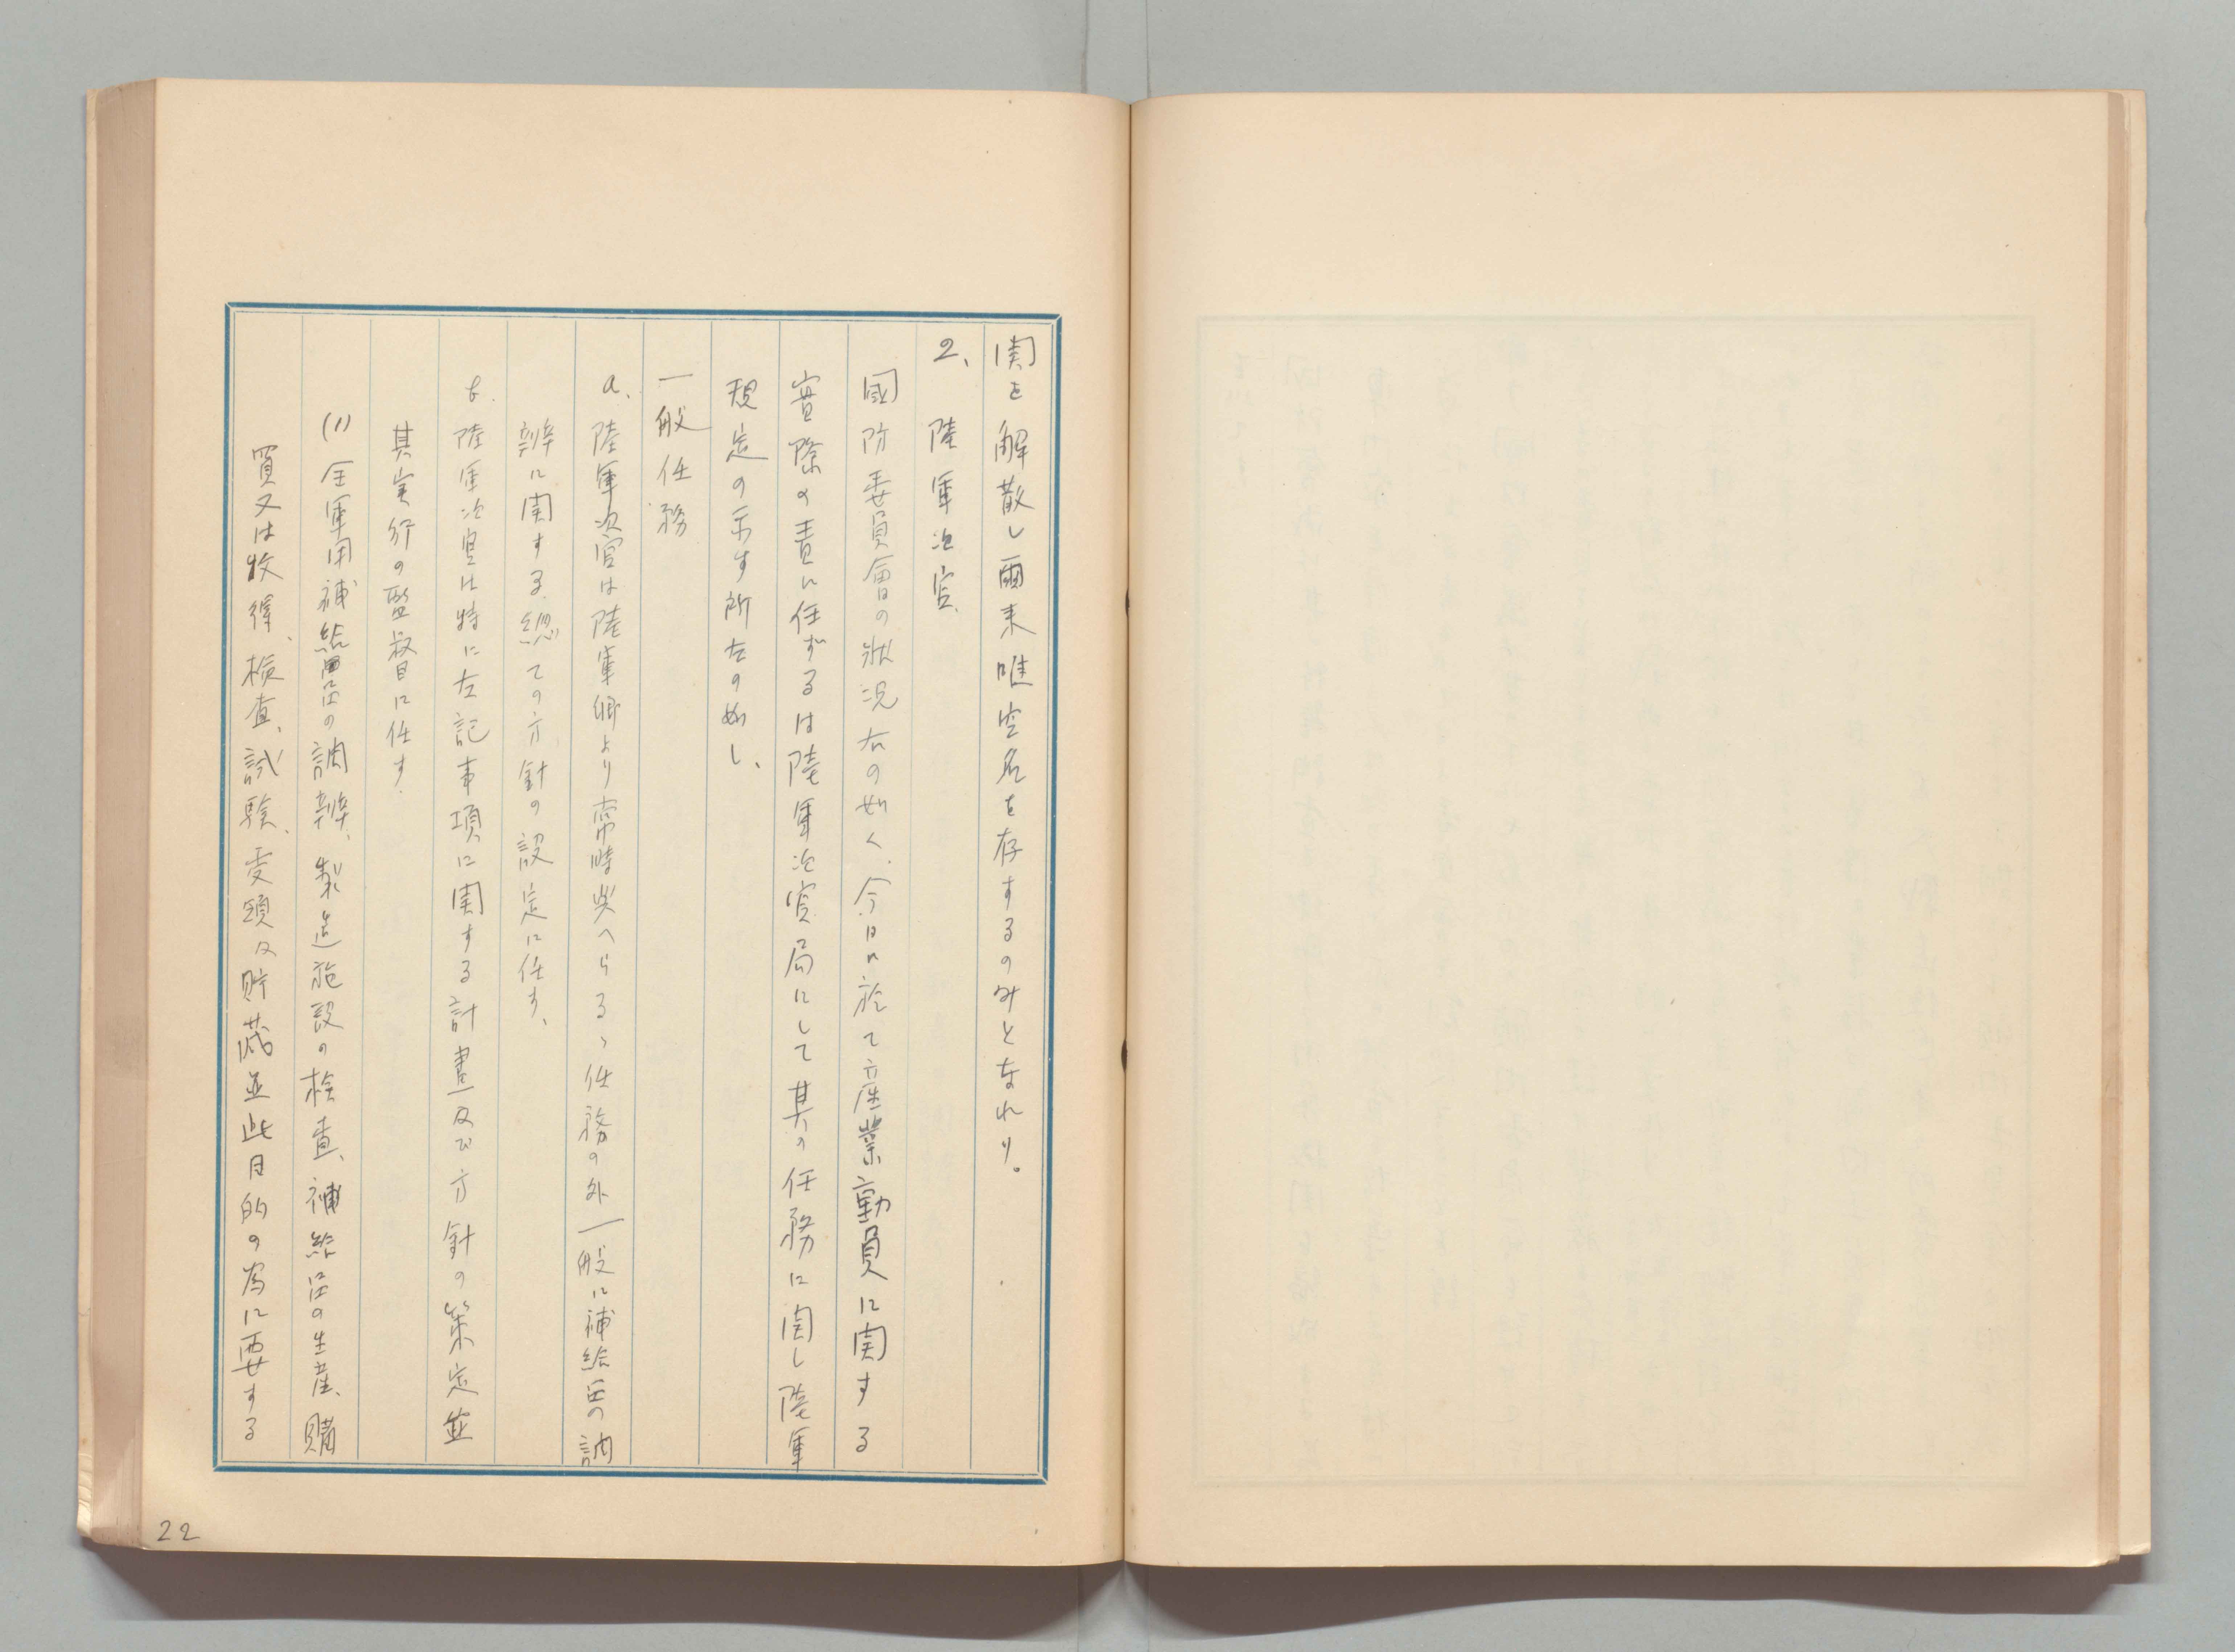 関を解散し爾来唯空名を存するのみとなれり。
2、陸軍次官
國防委員會の狀況右の如く、今日に於て産業動員に関する
實際の責に任ずるは陸軍次官局にして其の任務に関し陸軍
規定の示す所左の如し、
一般任務
a、陸軍次官は陸軍卿より常時與へらるゝ任務の外一般に補給品の調
辨に関する總ての方針の設定に任す、
b.陸軍次官は特に左記事項に関する計畫及び方針の策定並
其実行の監督に任す.
(1)全軍用補給品の調辨、製造施設の検査、補給品の生産、購
買又は收得、検査、試験、受領及貯蔵並此目的の為に要する
22